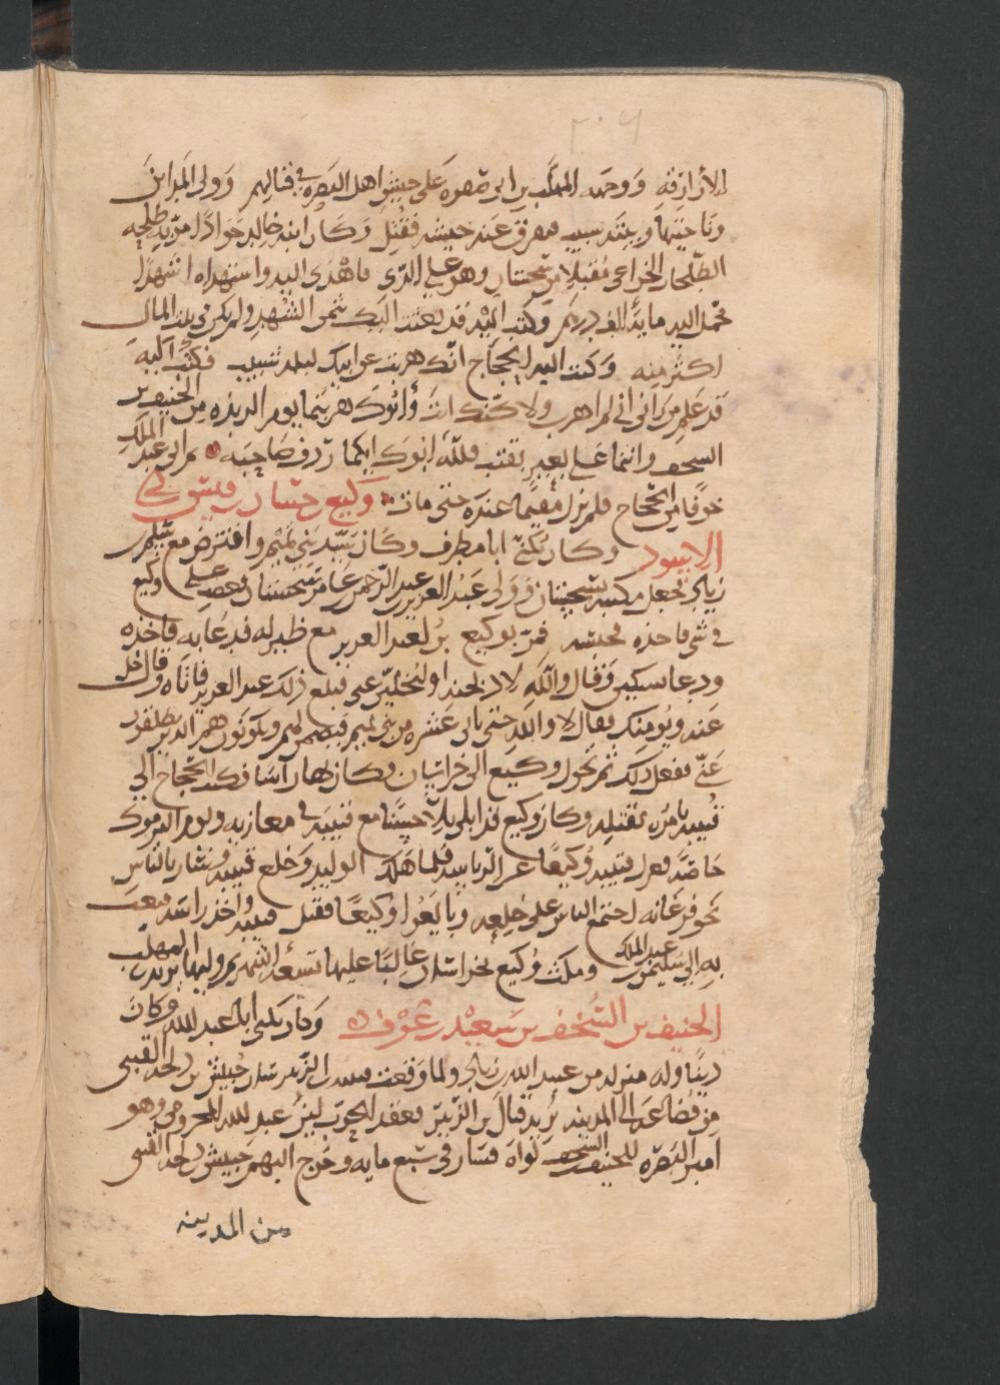 الأزارقه ووجه المهلب بن ابى صفره على جيش اهل البصره فى قتالهم وولى المداين
وناحيتها وبيته شبيب ففرق عنه جيشه فقتل وكان ابنه خالد جوادا مر به طلحه
الطلحات الخزاعى مقبلا من سجستان وهو على الرى فاهدى اليه واستهداه شهدا
فحمل اليه مايه الف درهم وكتب اليه قد بعثت اليك بثمن الشهد ولم يكن فى بيت المال
اكثر منه وكتب اليه الحجاج انك هربت عن ابيك ليله شبيب فكتب اليه
قد علم من رانى انى لم اهرب ولاكنك انت وابوك هربتما يوم الربذه من الحنيف بن
السجف وانتما على بعير بقتب فلله ابوك ايكما ردف صاحبه ثم اتى عبد الملك
خوفا من الحجاج فلم يزل مقيما عنده حتى مات وكيع بن حسان بن قيس بن ابى
الاسود وكان يكنى ابا مطرف وكان سيد بنى تميم وافترض مع سلم بن
زياد فجعل مكتبه بسجستان وولى عبد العزيز بن عبد الله بن عامر سجستان فغضب على وكيع
فى شى فاخذه فحبسه فمر بوكيع بز لعبد العزيز مع ظبر له فدعا به فاخذه
ودعا بسكين وقال والله لاذبحنه او لتخلين عنى فبلغ ذلك عبد العزيز فاتاه وقال خل
عنه ونومنك فقال لا والله حتى ياتى عشره من بنى تميم فيضمن لهم ويكونون هم الذين يطلقون
عنى ففعل ذلك ثم تحول وكيع الى خراسان فكان بها راسا فكتب الحجاج الى
قتيبه يامره بقتله وكان وكيع قد ابلى بلا حسنا مع قتيبه فى مغازيه ويوم الترموك
خاصه فعزل قتيبه وكيعا عن الرياسه فلما هلك الوليد وخلع قتيبه وسار بالناس
نحو فرغانه اجتمع الناس على خلعه وبايعوا وكيعا فقتل قتيبه واخذ راسه فبعث
به الى سليمن بن عبد الملك ومكث وكيع بخراسان غالبا عليها تسعه اشهر ثم وليها يزيد بن المهلب
الحنيف بن السجف بن سعيد بن عوف وكان يكنى ابا عبد الله وكان
دينا وله منزله من عبيد الله بن زياد ولما وقعت فتنه ابن الزبير سار حبيش بن دلجه القينى
من قضاعه الى المدينه يريد قتال ابن الزبير فعقد الحرث بن عبد الله المخزومى وهو
امير البصره للحنيف بن السجف لواه فسار فى سبع مايه وخرج اليهم حبيش بن دلجه القينى
من المدينه